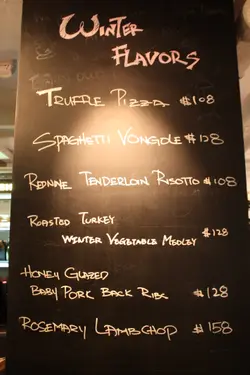 WINTER
FLAVORS
TRUFFLE PIZZA $108
SPAGHETTI VONGOLE $128
TENDERLOIN RISOTTO $108
ROASTED TURKEY
WINTER VEGETABLE MEDLEY $128
HONEY GLAZED
BABY PORK BACK RIBS $128
ROSEMARY LAMBCHOP $158